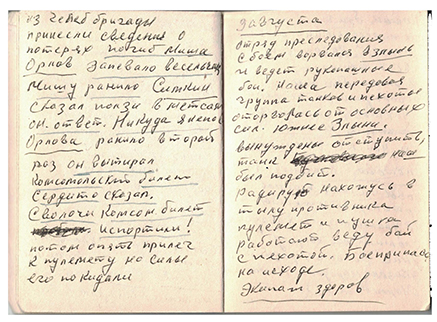 из штаб бригады
принесли сведения о
потерях погиб Миша
Орлов Запевало весельчак
Мишу ранило Ситкин
сказал ползи в метсан
он ответ. Никуда я непо
Орлова ранило второй
раз он вытирал
Комсомольский билет
Сердито сказал.
Сволочи Комсом билет
испортили!
потом опять прилег
к пулемету но силы
его покидали
3 августа
отряд преследования
с боем ворвался в Знынь
и ведет рукопашные
бои. Наша передовая
группа танков и пехоты
оторвалась от основных
сил. южнее Злыни.
вынуждены отступить,
танк наш
был подбит.
Радирует нахожусь в
тылу противника
пулемет и пушка
работают веду бой
с пехотой. Боеприпасы
на исходе.
Экипаж здоров